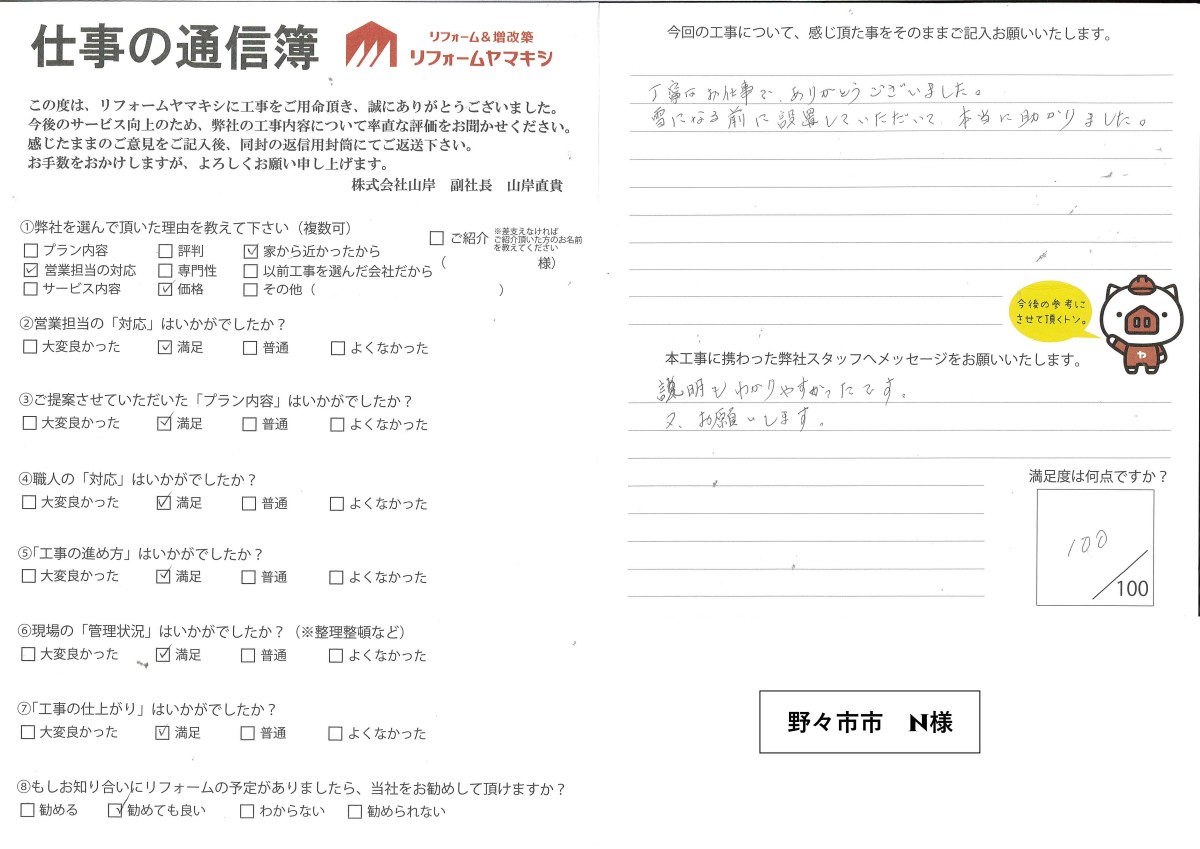 仕事の通信簿
リフォーム&増改築
リフォームヤマキシ
この度は、リフォームヤマキシに工事をご用命頂き、誠にありがとうございました。
今後のサービス向上のため、弊社の工事内容について率直な評価をお聞かせください。
感じたままのご意見をご記入後、同封の返信用封筒にてご返送下さい。
お手数をおかけしますが、よろしくお願い申し上げます。
株式会社山岸 副社長 山岸直貴
①弊社を選んで頂いた理由を教えて下さい（複数可）
□ プラン内容 □ 評判 ☑ 家から近かったから
☑ 営業担当の対応 □ 専門性 □ 以前工事を選んだ会社だから
□ サービス内容 ☑ 価格 □ その他（ ）
□ ご紹介
※差支えなければ
ご紹介頂いた方のお名前
を教えてください
（ 様）
②営業担当の「対応」はいかがでしたか？
□ 大変良かった ☑ 満足 □ 普通 □ よくなかった
③ご提案させていただいた「プラン内容」はいかがでしたか？
□ 大変良かった ☑ 満足 □ 普通 □ よくなかった
④職人の「対応」はいかがでしたか？
□ 大変良かった ☑ 満足 □ 普通 □ よくなかった
⑤「工事の進め方」はいかがでしたか？
□ 大変良かった ☑ 満足 □ 普通 □ よくなかった
⑥現場の「管理状況」はいかがでしたか？（※整理整頓など）
□ 大変良かった ☑ 満足 □ 普通 □ よくなかった
⑦「工事の仕上がり」はいかがでしたか？
□ 大変良かった ☑ 満足 □ 普通 □ よくなかった
⑧もしお知り合いにリフォームの予定がありましたら、当社をお勧めして頂けますか？
□ 勧める ☑ 勧めても良い □ わからない □ 勧められない
今回の工事について、感じ頂た事をそのままご記入お願いいたします。
丁寧なお仕事で、ありがとうございました。
雪になる前に設置していただいて、本当に助かりました。
今後の参考に
させて頂くトン。
ヤ
本工事に携わった弊社スタッフへメッセージをお願いいたします。
説明もわかりやすかったです。
又、お願いします。
満足度は何点ですか？
100
/100
野々市市 N様